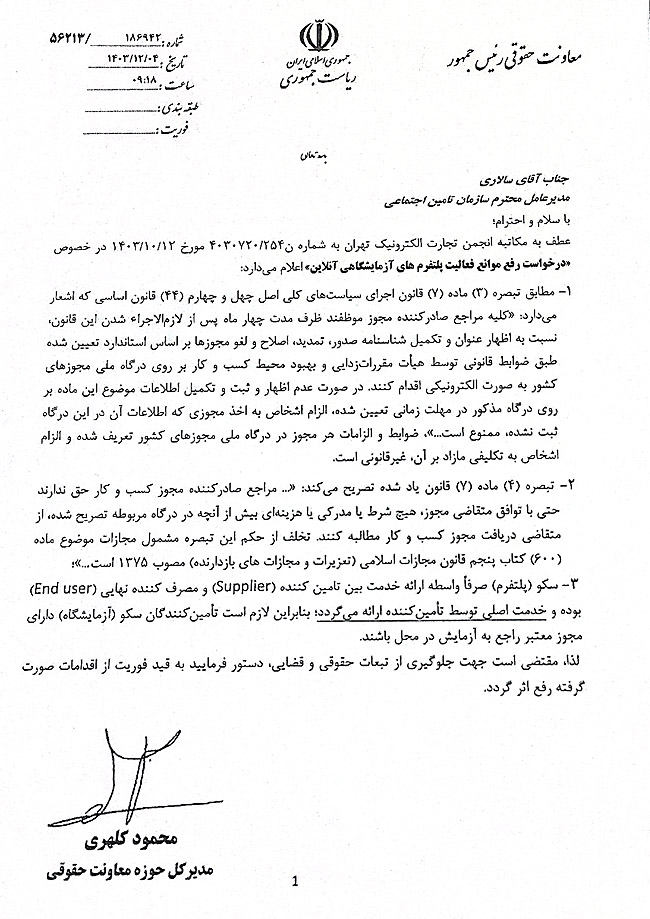 معاونت حقوقی رئیس جمهور
جمهوری اسلامی ایران
ریاست جمهوری
شماره: ۱۸۶۹۴۲ /۵۶۲۱۳
تاریخ: ۱۴۰۳/۱۲/۰۴
ساعت: ۰۹:۱۸
طبقه بندی:
فوریت:
بسمه تعالی
جناب آقای سالاری
مدیرعامل محترم سازمان تامین اجتماعی
با سلام و احترام؛
عطف به مکاتبه انجمن تجارت الکترونیک تهران به شماره ن۴۰۳۰۷۲۰/۲۵۴ مورخ ۱۴۰۳/۱۰/۱۲ در خصوص
«درخواست رفع موانع فعالیت پلتفرم های آزمایشگاهی آنلاین» اعلام می‌دارد:
۱- مطابق تبصره (۳) ماده (۷) قانون اجرای سیاست‌های کلی اصل چهل و چهارم (۴۴) قانون اساسی که اشعار
می‌دارد: «کلیه مراجع صادرکننده مجوز موظفند ظرف مدت چهار ماه پس از لازم‌الاجراء شدن این قانون،
نسبت به اظهار عنوان و تکمیل شناسنامه صدور، تمدید، اصلاح و لغو مجوزها بر اساس استاندارد تعیین شده
طبق ضوابط قانونی توسط هیأت مقررات‌زدایی و بهبود محیط کسب و کار بر روی درگاه ملی مجوزهای
کشور به صورت الکترونیکی اقدام کنند. در صورت عدم اظهار و ثبت و تکمیل اطلاعات موضوع این ماده بر
روی درگاه مذکور در مهلت زمانی تعیین شده، الزام اشخاص به اخذ مجوزی که اطلاعات آن در این درگاه
ثبت نشده، ممنوع است...»، ضوابط و الزامات هر مجوز در درگاه ملی مجوزهای کشور تعریف شده و الزام
اشخاص به تکلیفی مازاد بر آن، غیرقانونی است.
۲- تبصره (۴) ماده (۷) قانون یاد شده تصریح می‌کند: «... مراجع صادرکننده مجوز کسب و کار حق ندارند
حتی با توافق متقاضی مجوز، هیچ شرط یا مدرکی یا هزینه‌ای بیش از آنچه در درگاه مربوطه تصریح شده، از
متقاضی دریافت مجوز کسب و کار مطالبه کنند. تخلف از حکم این تبصره مشمول مجازات موضوع ماده
(۶۰۰) کتاب پنجم قانون مجازات اسلامی (تعزیرات و مجازات های بازدارنده) مصوب ۱۳۷۵ است...»؛
۳- سکو (پلتفرم) صرفاً واسطه ارائه خدمت بین تامین کننده (Supplier) و مصرف کننده نهایی (End user)
بوده و خدمت اصلی توسط تأمین‌کننده ارائه می‌گردد؛ بنابراین لازم است تأمین‌کنندگان سکو (آزمایشگاه) دارای
مجوز معتبر راجع به آزمایش در محل باشند.
لذا، مقتضی است جهت جلوگیری از تبعات حقوقی و قضایی، دستور فرمایید به قید فوریت از اقدامات صورت
گرفته رفع اثر گردد.
محمود کلهری
مدیرکل حوزه معاونت حقوقی
1